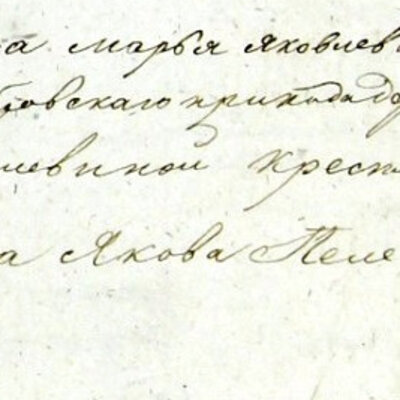 а Марья Яковлев
овскаго прихода д
левиной крест
а Якова Пеле